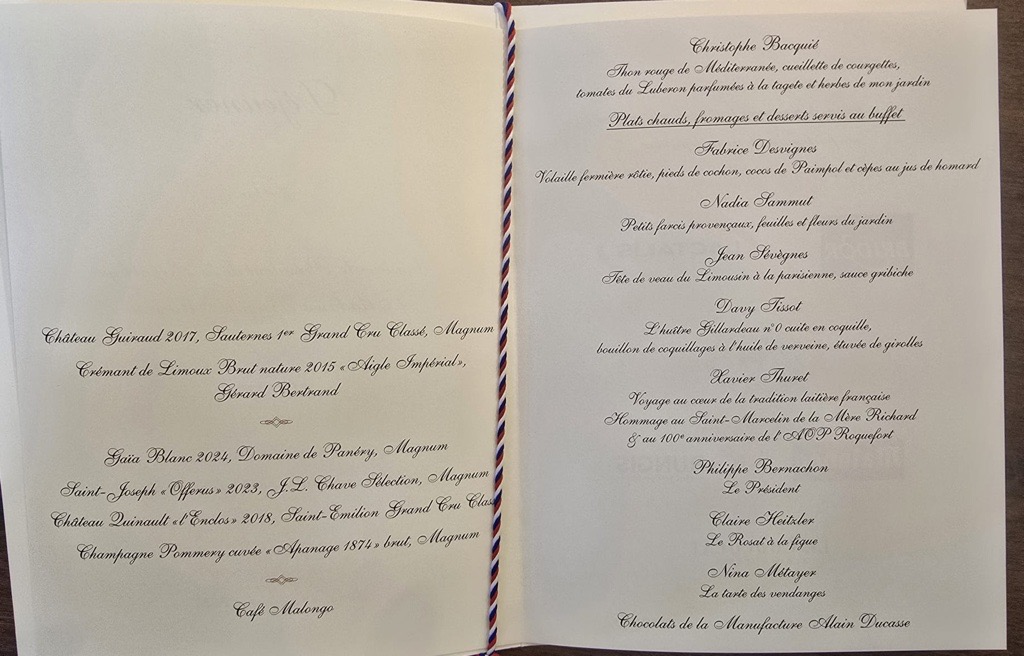 Château Guiraud 2017, Sauternes 1er Grand Cru Classé, Magnum
Crémant de Limoux Brut nature 2015 « Aigle Impérial »,
Gérard Bertrand
Gaïa Blanc 2024, Domaine de Panéry, Magnum
Saint-Joseph « Offerus » 2023, J.L. Chave Sélection, Magnum
Château Quinault « l'Enclos » 2018, Saint-Emilion Grand Cru Clas
Champagne Pommery cuvée « Apanage 1874 » brut, Magnum
Café Malongo
Christophe Bacquié
Thon rouge de Méditerranée, cueillette de courgettes,
tomates du Luberon parfumées à la tagete et herbes de mon jardin
Plats chauds, fromages et desserts servis au buffet
Fabrice Desvignes
Volaille fermière rôtie, pieds de cochon, cocos de Paimpol et cèpes au jus de homard
Nadia Sammut
Petits farcis provençaux, feuilles et fleurs du jardin
Jean Sévègnes
Tête de veau du Limousin à la parisienne, sauce gribiche
Davy Tissot
L'huître Gillardeau n°0 cuite en coquille,
bouillon de coquillages à l'huile de verveine, étuvée de girolles
Xavier Thuret
Voyage au cœur de la tradition laitière française
Hommage au Saint-Marcelin de la Mère Richard
& au 100e anniversaire de l'AOP Roquefort
Philippe Bernachon
Le Président
Claire Heitzler
Le Rosat à la figue
Nina Métayer
La tarte des vendanges
Chocolats de la Manufacture Alain Ducasse